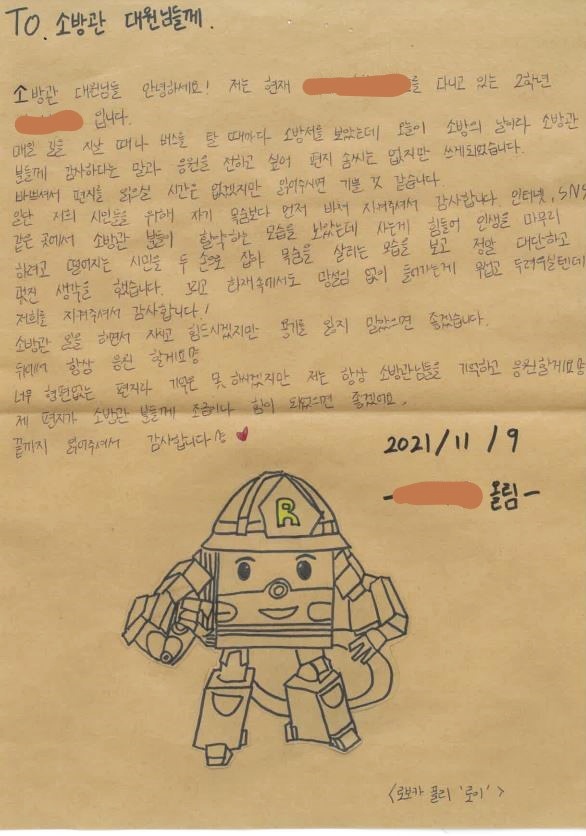 TO. 소방관 대원님들께.
소방관 대원님들 안녕하세요! 저는 현재 를 다니고 있는 2학년
입니다.
매일 길을 지날 때나 버스를 탈 때마다 소방서를 보았는데 오늘이 소방의 날이라 소방관
분들께 감사하다는 말과 응원을 전하고 싶어 편지 솜씨는 없지만 쓰게되었습니다.
바쁘셔서 편지를 읽으실 시간은 없겠지만 읽어주시면 기쁠 것 같습니다.
일단 저희 시민들을 위해 자기 목숨보다 먼저 바쳐 지켜주셔서 감사합니다. 인터넷, SNS
같은 곳에서 소방관 분들이 활약하는 모습을 보았는데 사는게 힘들어 인생을 마무리
하려고 떨어지는 시민을 두 손으로 잡아 목숨을 살리는 모습을 보고 정말 대단하고
멋진 생각을 했습니다. 그리고 화재속에서도 망설임 없이 들어가는게 무섭고 두려우실텐데
저희를 지켜주셔서 감사합니다!
소방관 일을 하면서 지치고 힘드시겠지만 용기를 잃지 말았으면 좋겠습니다.
뒤에서 항상 응원 할게요
너무 형편없는 편지라 기억은 못 하시겠지만 저는 항상 소방관님들을 기억하고 응원할게요
제 편지가 소방관 분들께 조금이나 힘이 되었으면 좋겠어요.
끝까지 읽어주셔서 감사합니다
2021/11/9
- 올림-
R
<로보카 폴리 '로이'>